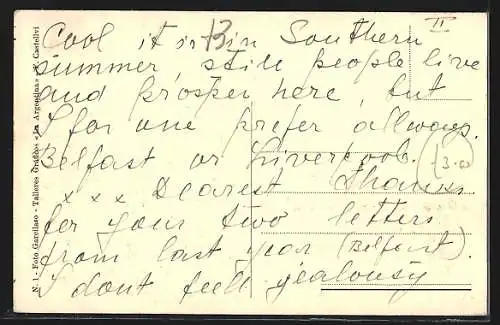 II
Cool it is in Southern
summer still people live
and prosper here, but
I for one prefer allways.
Belfast or Liverpool.
x x x Dearest Thanks
for your two letters
from last year (Belfast).
I dont feel yealousy
13
{3.00
N. 1 - Foto Garellaso - Talleres Gráficos «La Argentina» - V. Castellví